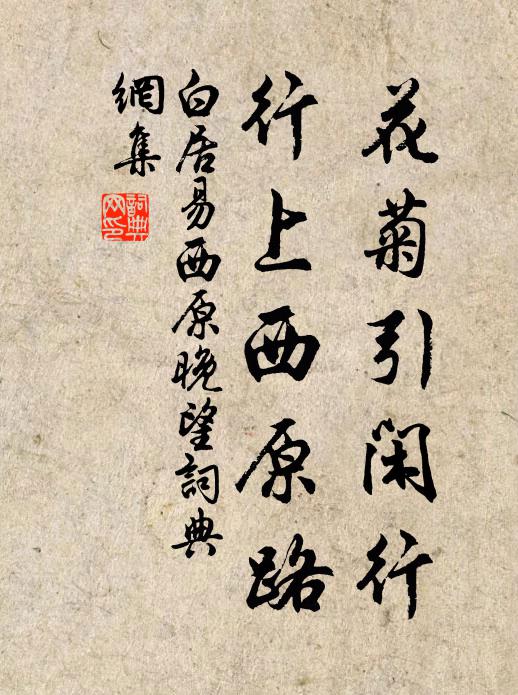 花菊引閑行
行上西原路
白居易西原晚望詞典
網集
詞典
网印